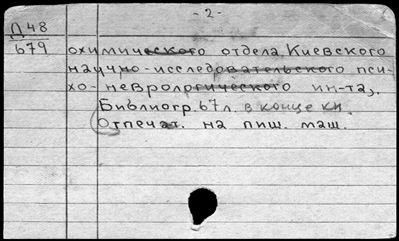 - 2 -
Д 48
679
охимического отдела Киевского
научно-исследовательского пси-
хо-неврологического ин-та).
Библиогр. 67 л. в конце кн.
Отпечат. на пиш. маш.